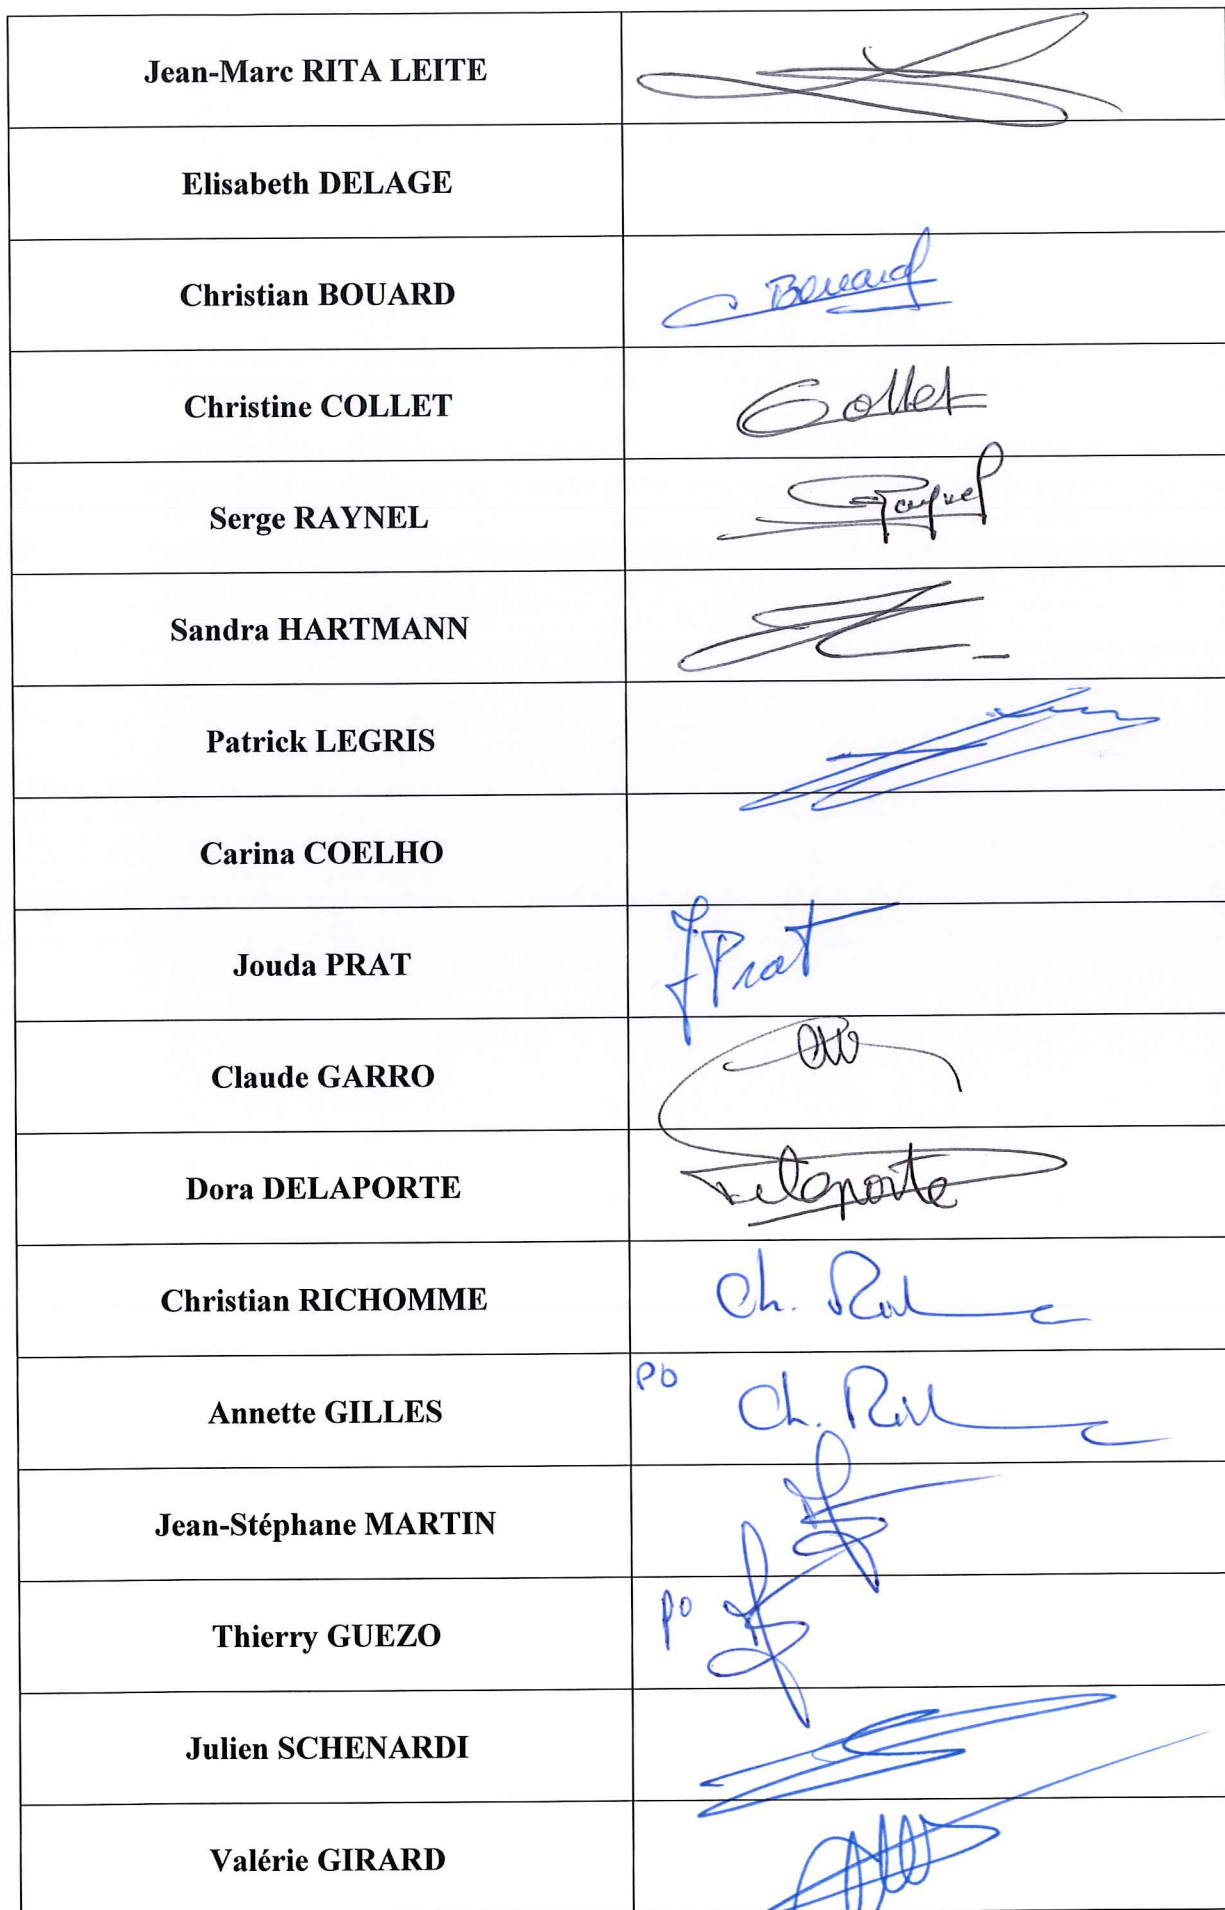 Jean-Marc RITA LEITE
Elisabeth DELAGE
Christian BOUARD
C Bouard
Christine COLLET
Collet
Serge RAYNEL
Raynel
Sandra HARTMANN
Patrick LEGRIS
Carina COELHO
Jouda PRAT
J Prat
Claude GARRO
Dora DELAPORTE
Delaporte
Christian RICHOMME
Ch.
Annette GILLES
PO Ch.
Jean-Stéphane MARTIN
Thierry GUEZO
PO
Julien SCHENARDI
Valérie GIRARD